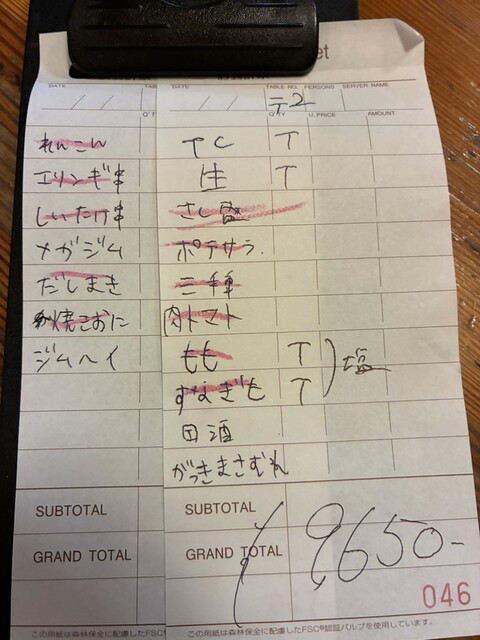 et
DATE TABLE NO. PERSONS SERVER NAME
テ2
Q'TY U.PRICE AMOUNT
TC T
生 T
さし盛
ポテサラ
三種
肉トマト
もも T
すなぎも T
塩
田酒
がっきまさむね
SUBTOTAL
GRAND TOTAL
9650-
046
この用紙は森林保全に配慮したFSC®認証パルプを使用しています。
DATE TAB
Q'T
れんこん
エリンギ串
しいたけ串
メガジム
だしまき
焼きおに
ジムハイ
SUBTOTAL
GRAND TOTAL
この用紙は森林保全に配慮したFSC